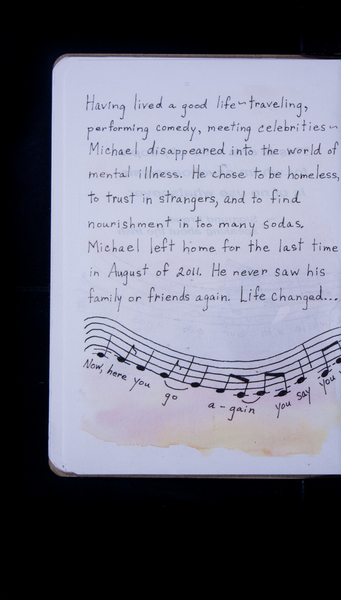 Having lived a good life~traveling,
performing comedy, meeting celebrities~
Michael disappeared into the world of
mental illness. He chose to be homeless,
to trust in strangers, and to find
nourishment in too many sodas.
Michael left home for the last time
in August of 2011. He never saw his
family or friends again. Life changed...
Now, here you go a-gain you say you